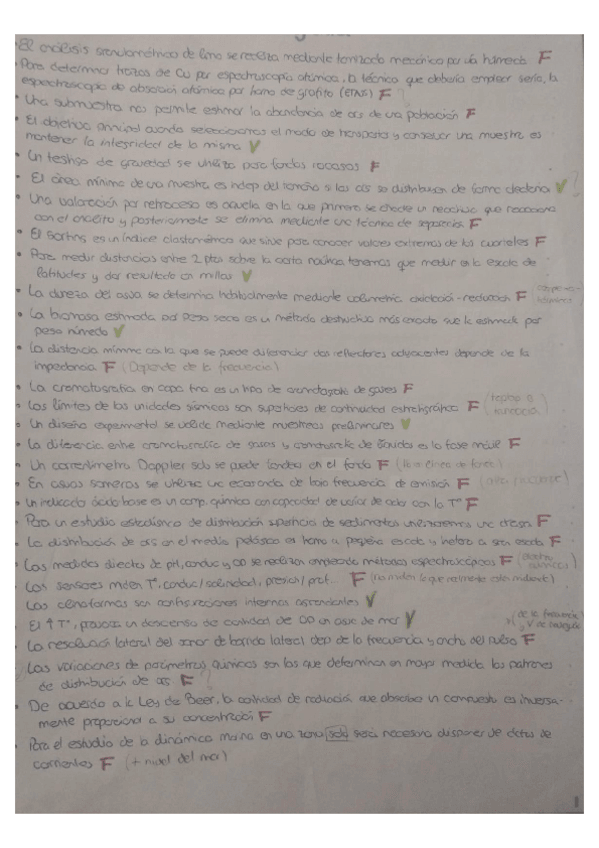 • El análisis granulométrico de limo se realiza mediante tamizado mecánico por vía húmeda F
• Para determinar trazas de Cu por espectroscopía atómica, la técnica que debería emplear sería, la
espectroscopia de absorción atómica por horno de grafito (ETAS) F ?
• Una submuestra nos permite estimar la abundancia de ors de una población F
• El objetivo principal cuando seleccionamos el modo de transporte y conservar una muestra es
mantener la integridad de la misma V
• Un testigo de gravedad se utiliza para fondos rocosos F
• El área mínima de una muestra es indep del tamaño si los ors se distribuyen de forma aleatoria V ?
• Una valoración por retroceso es aquella en la que primero se añade un reactivo que reacciona
con el analito y posteriormente se elimina mediante una técnica de separación F
• El sorting es un índice granulométrico que sirve para conocer valores extremos de los cuartiles F
• Para medir distancias entre 2 ptos sobre la carta náutica tenemos que medir en la escala de
latitudes y dar resultado en millas V
• La dureza del agua se determina habitualmente mediante volumetría oxidación-reducción F
• La biomasa estimada por peso seco es un método destructivo más exacto que la estimada por
peso húmedo V
• La distancia mínima con la que se puede diferenciar dos reflectores adyacentes depende de la
impedancia F (Depende de la frecuencia)
• La cromatografía en capa fina es un tipo de cromatografía de gases F
• Los límites de las unidades sísmicas son superficies de continuidad estratigráfica F
• Un diseño experimental se valida mediante muestreos preliminares V
• La diferencia entre cromatografía de gases y cromatografía de líquidos es la fase móvil F
• Un correntímetro Doppler solo se puede fondear en el fondo F
• En aguas someras se utiliza una ecosonda de baja frecuencia de emisión F (alta frecuencia)
• Un indicador ácido base es un comp. químico con capacidad de variar de color con la Tª F
• Para un estudio estadístico de distribución superficial de sedimentos utilizaremos una draga F
• La distribución de ors en el medio pelágico es homo a pequeña escala y hetero a gran escala F
• Las medidas directas de pH, conduc y OD se realizan empleando métodos espectroscópicos F (electroquímicos)
• Los sensores miden Tª, conduc/salinidad, presión/prof. F (no miden lo que realmente están midiendo)
Las clinoformas son configuraciones internas ascendentes V
• El ↑Tª, provoca un descenso de cantidad de OD en agua de mar V
• La resolución lateral del sonar de barrido lateral dep de la frecuencia y ancho del pulso F (de la frecuencia y V de navegación)
• Las variaciones de parámetros químicos son las que determinan en mayor medida los patrones
de distribución de ors F ?
• De acuerdo a la Ley de Beer, la cantidad de radiación que absorbe un compuesto es inversa-
mente proporcional a su concentración F
• Para el estudio de la dinámica marina en una zona solo será necesario disponer de datos de
corrientes F (+ nivel del mar)